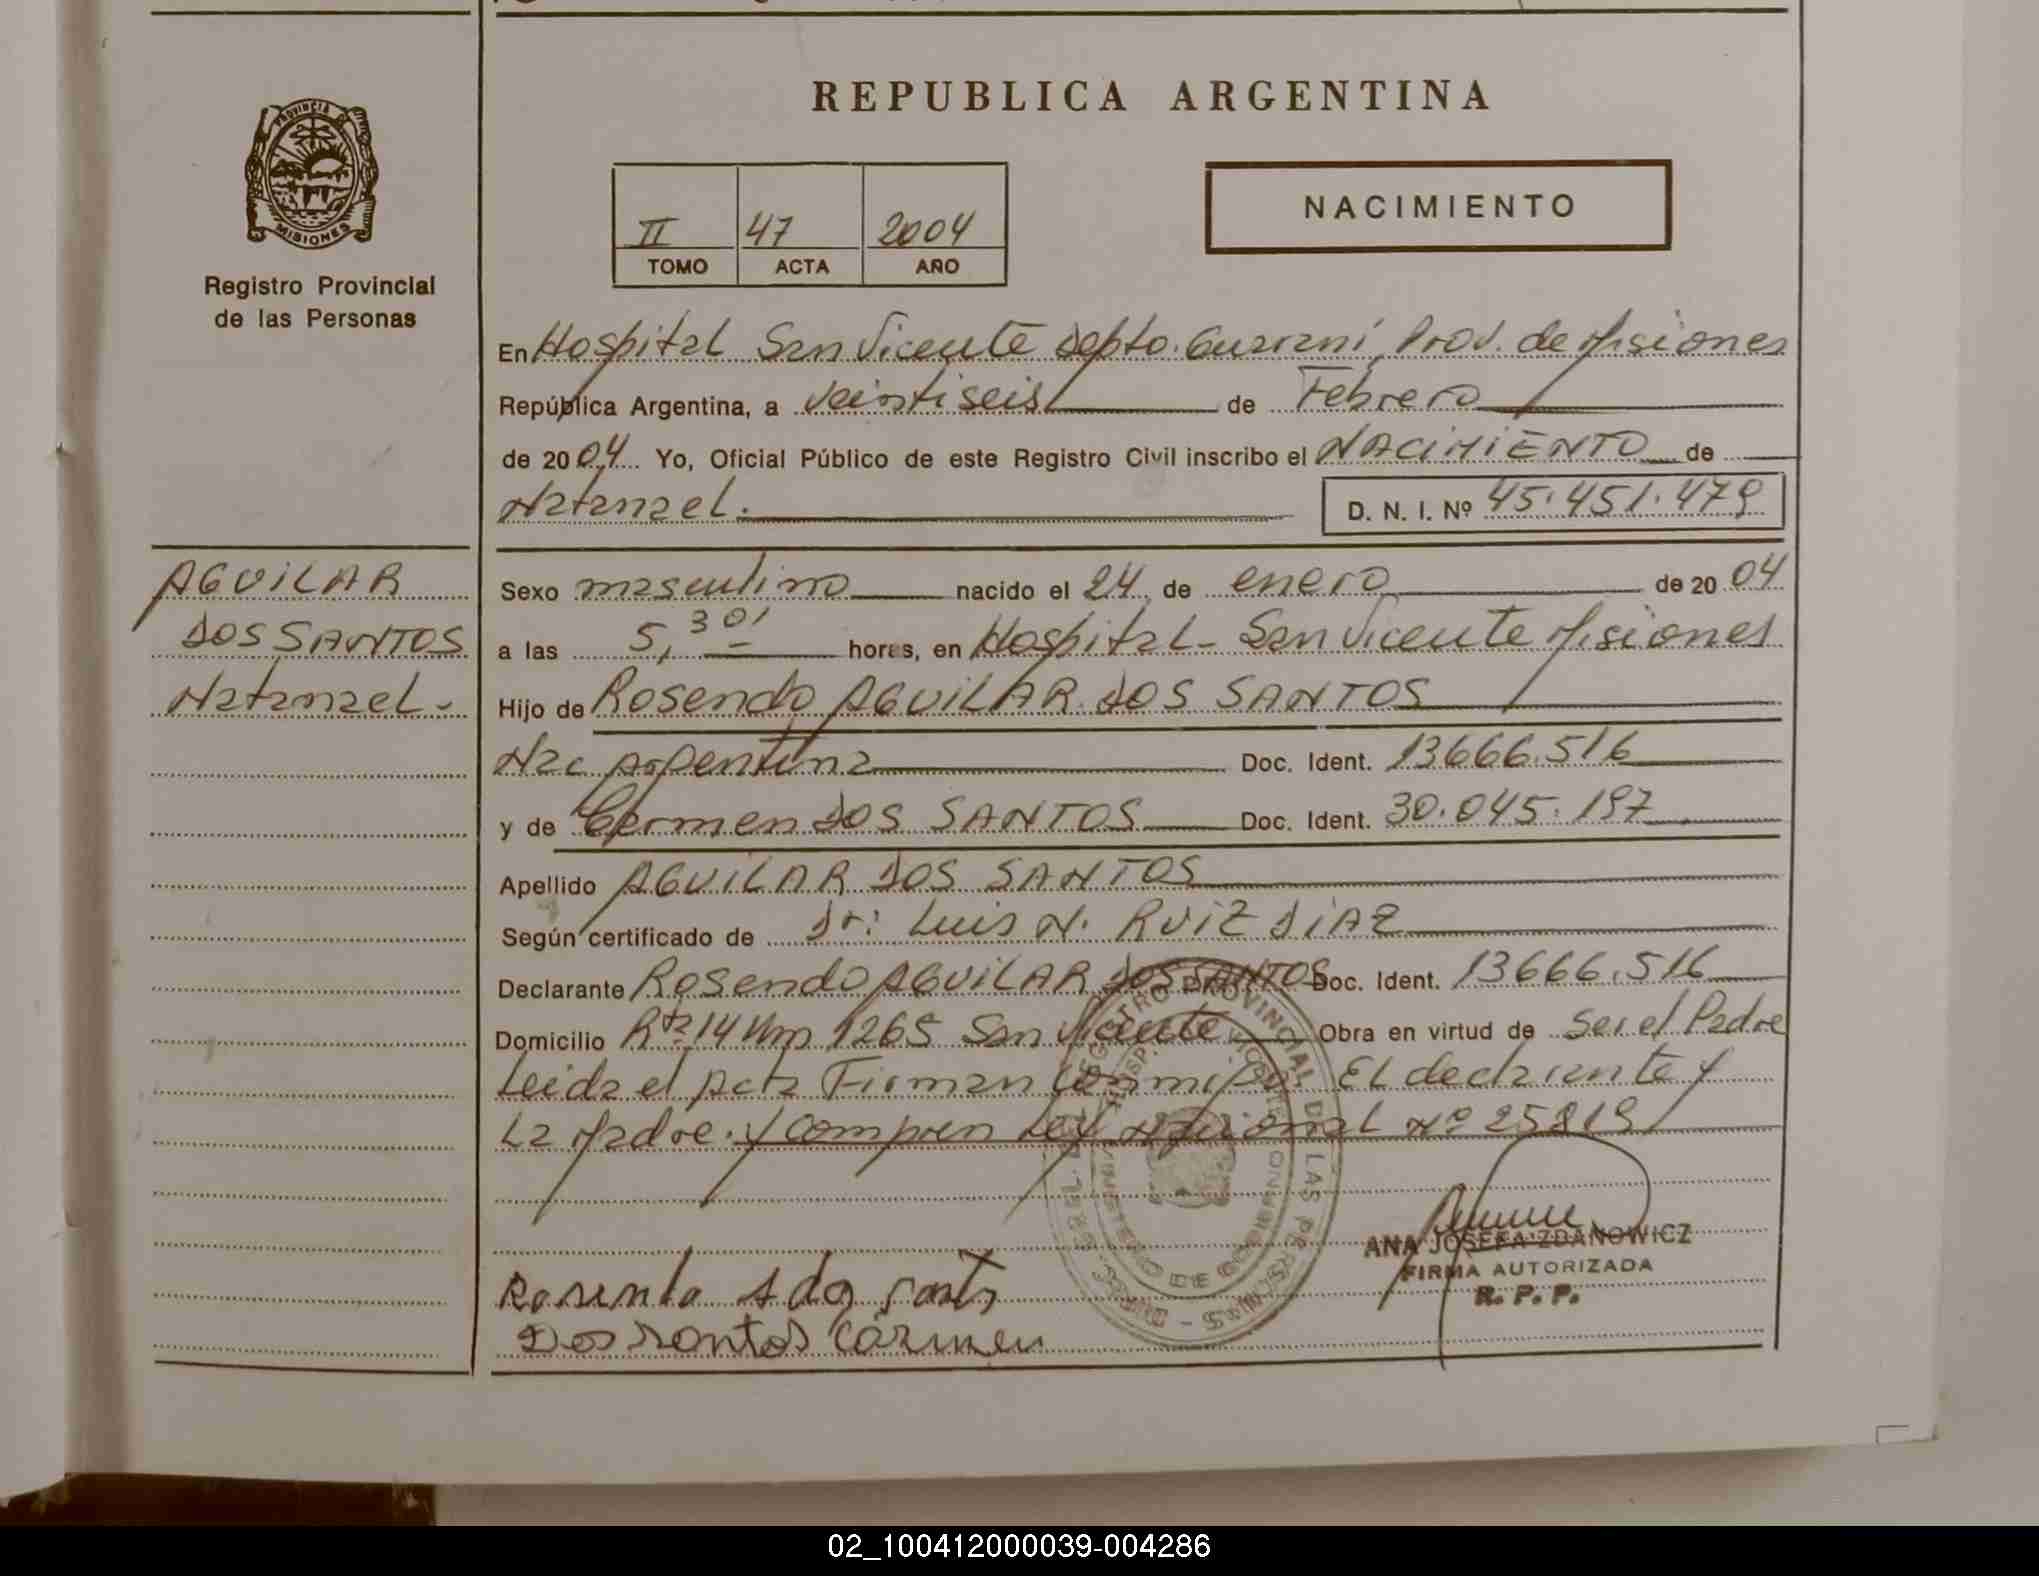 REPUBLICA ARGENTINA
PROVINCIA DE
MISIONES
Registro Provincial
de las Personas
II 47 2004
TOMO ACTA AÑO
NACIMIENTO
En Hospital San Vicente Depto. Guaraní, Prov. de Misiones
República Argentina, a veintiseis de Febrero
de 2004 Yo, Oficial Público de este Registro Civil inscribo el NACIMIENTO de
Natanael. D. N. I. Nº 45.451.479
AGUILAR
DOS SANTOS
Natanael.-
Sexo masculino nacido el 24 de enero de 2004
a las 5,30' horas, en Hospital - San Vicente Misiones
Hijo de Rosendo AGUILAR DOS SANTOS
Nac Argentina Doc. Ident. 13666.516
y de Carmen DOS SANTOS Doc. Ident. 30.045.197
Apellido AGUILAR DOS SANTOS
Según certificado de Dr: Luis N. RUIZ DIAZ
Declarante Rosendo AGUILAR DOS SANTOS Doc. Ident. 13666.516
Domicilio Rta 14 Km 1265 San Vicente Obra en virtud de Ser el Padre
Leida el Acta Firman Conmigo El declarante y
La Madre. y Ley Nacional Nº 25819
REGISTRO PROVINCIAL DE LAS PERSONAS
MINISTERIO DE GOBIERNO
ANA JOSEFA ZDANOWICZ
FIRMA AUTORIZADA
R. P. P.
Rosendo A dos Santos
Dos santos Carmen
02_100412000039-004286